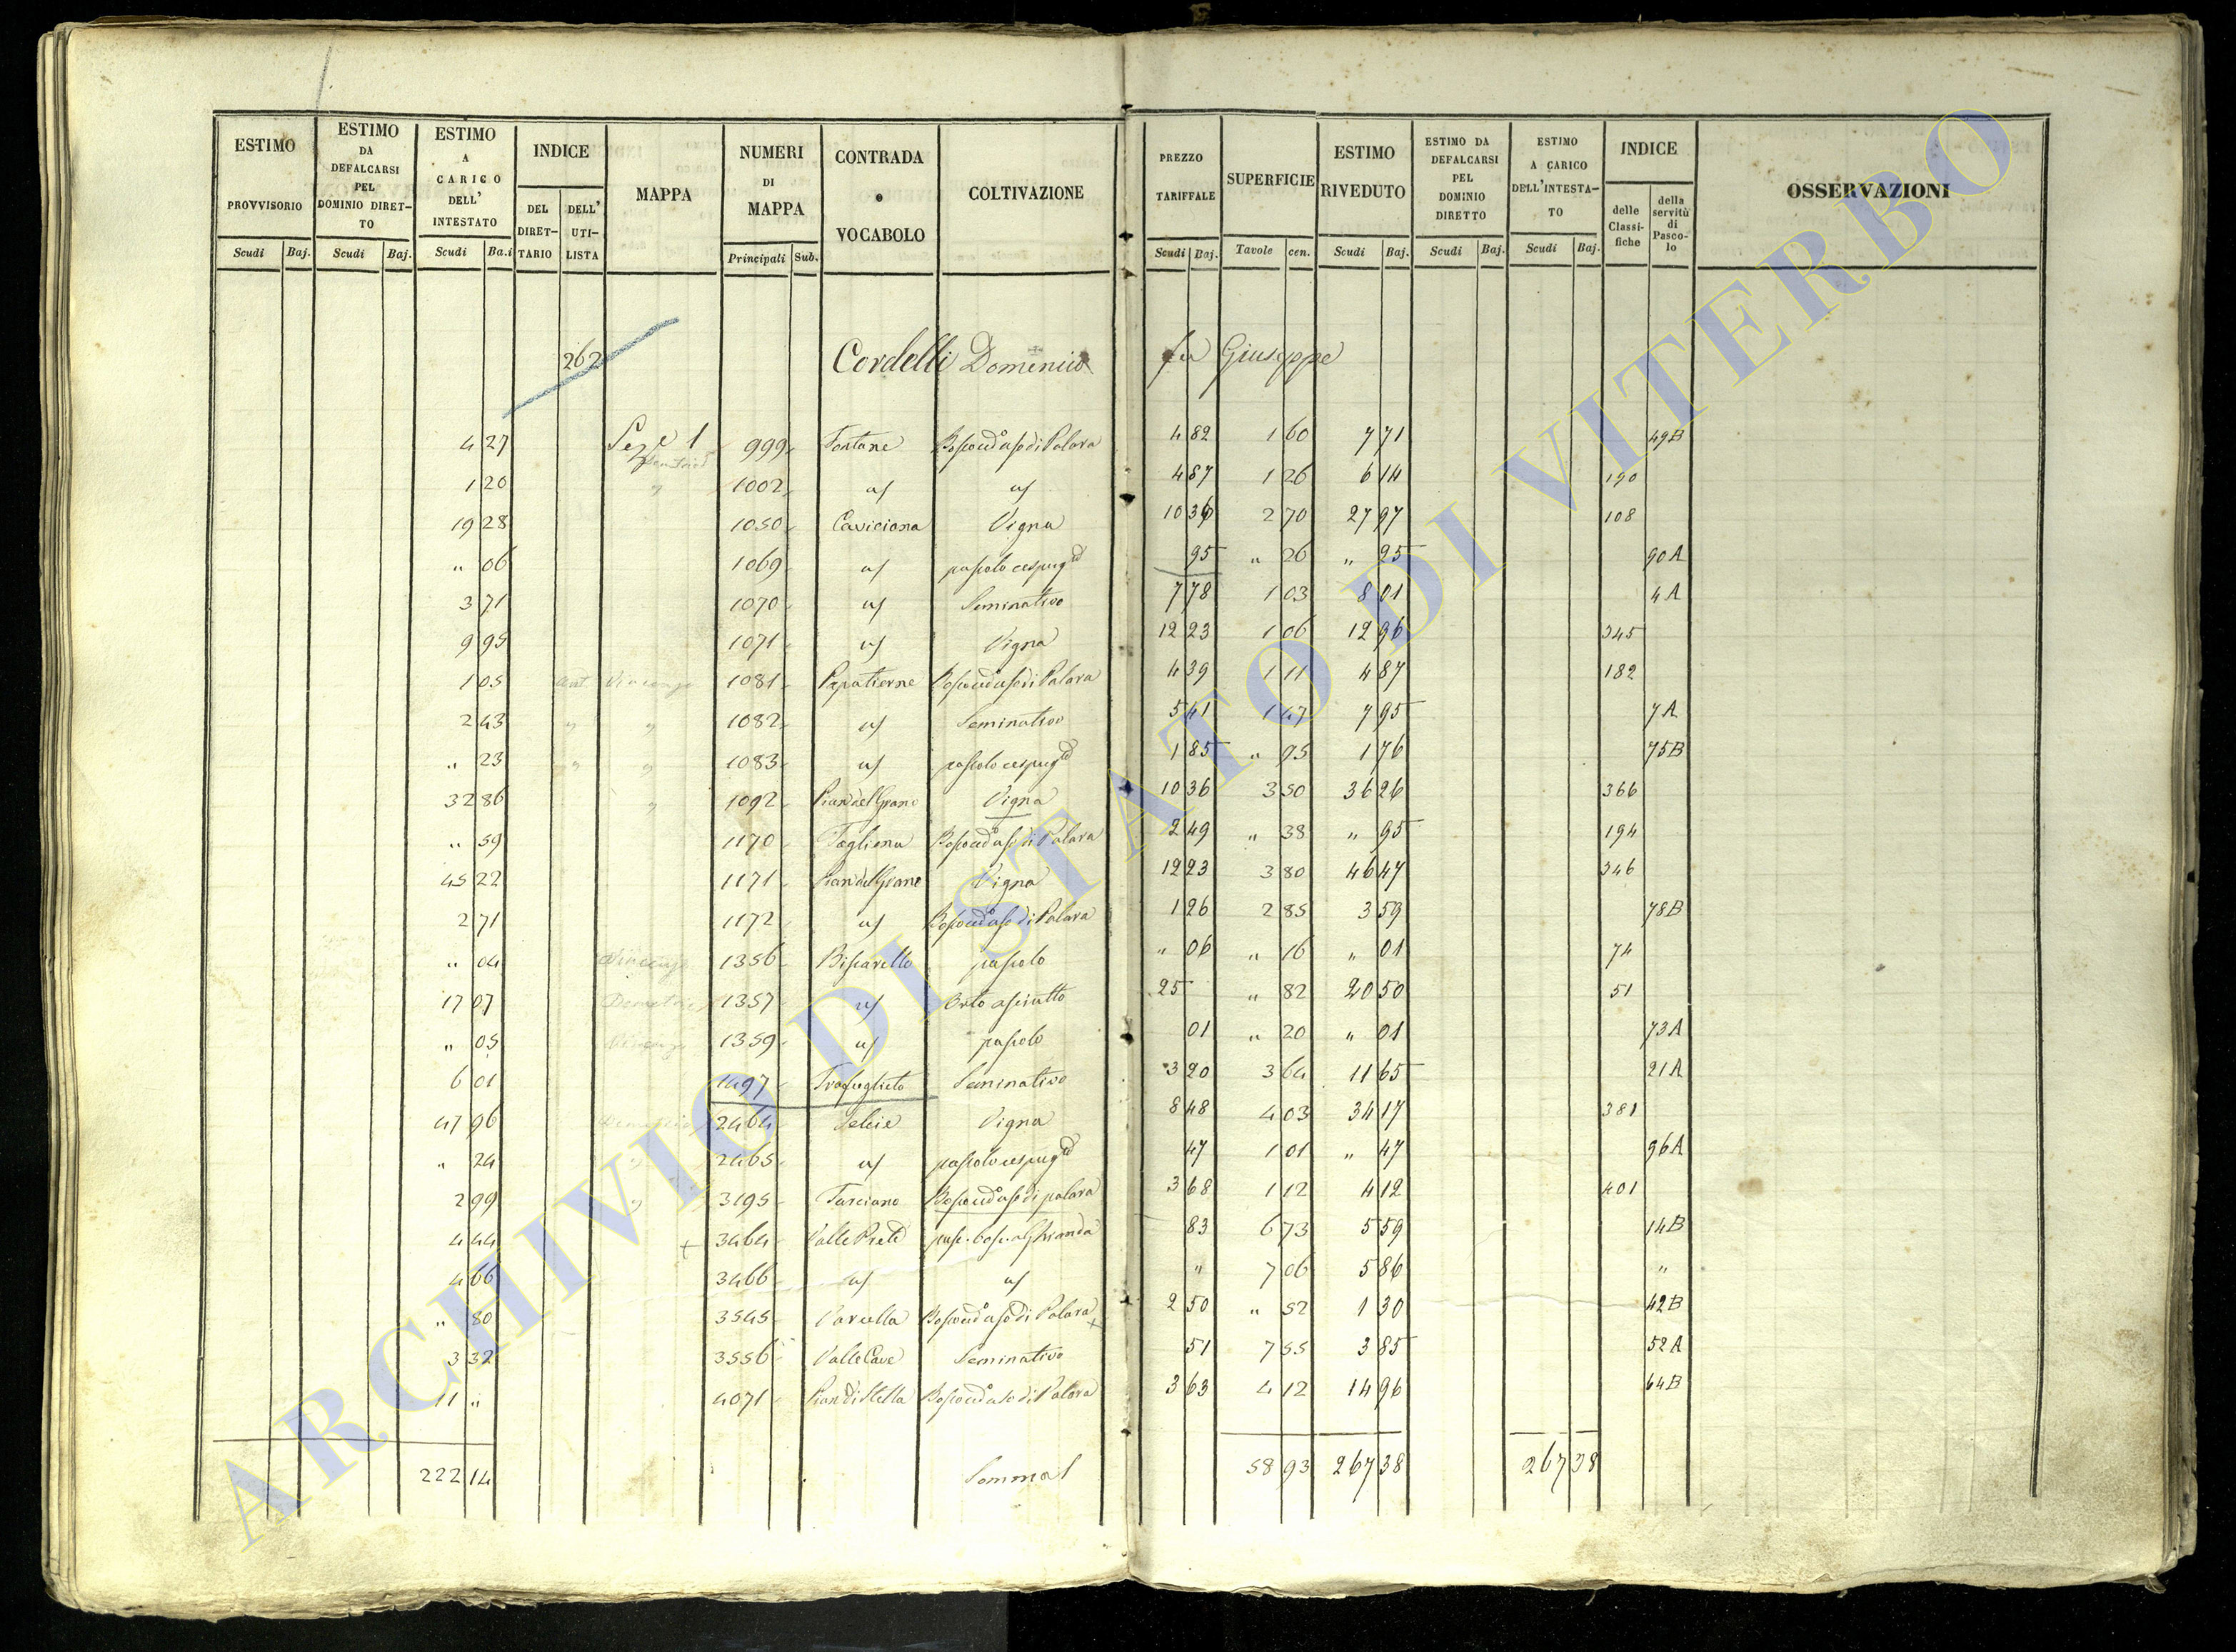 ESTIMO PROVVISORIO Scudi Baj.
ESTIMO DA DEFALCARSI PEL DOMINIO DIRETTO Scudi Baj.
ESTIMO A CARICO DELL' INTESTATO Scudi Ba.i
INDICE DEL DIRETTARIO DELL' UTILISTA
MAPPA
NUMERI DI MAPPA Principali Sub.
CONTRADA o VOCABOLO
COLTIVAZIONE
PREZZO TARIFFALE Scudi Baj.
SUPERFICIE Tavole cen.
ESTIMO RIVEDUTO Scudi Baj.
ESTIMO DA DEFALCARSI PEL DOMINIO DIRETTO Scudi Baj.
ESTIMO A CARICO DELL'INTESTATO Scudi Baj.
INDICE delle Classifiche della servitù di Pascolo
OSSERVAZIONI
262 Cordelli Domenico fu Giuseppe
4 27 Sez.e 1 999 Fontane Bosco ced.o uso di Palara 4 82 1 60 7 71 49B
1 20 " 1002 us us 4 87 1 26 6 14 190
19 28 1050 Caviciana Vigna 10 36 2 70 27 97 108
" 06 1069 us pascolo cespug.o 95 " 26 " 25 90A
3 71 1070 us Seminativo 7 78 1 03 8 01 4A
9 95 1071 us Vigna 12 23 1 06 12 96 345
1 05 Vincenzo 1081 Papatierne Bosco ced.o uso di Palara 4 39 1 11 4 87 182
2 43 " " 1082 us Seminativo 5 41 1 47 7 95 7A
" 23 " " 1083 us pascolo cespug.o 1 85 " 95 1 76 75B
32 86 " 1092 Pian del Grano Vigna 10 36 3 50 36 26 366
" 59 1170 Fogliena Bosco ced.o uso di Palara 2 49 " 38 " 95 194
45 22 1171 Pian del Grano Vigna 12 23 3 80 46 47 346
2 71 1172 us Bosco ced.o uso di Palara 1 26 2 85 3 59 78B
" 04 Vincenzo 1356 Biscarello pascolo " 06 " 16 " 01 74
17 07 1357 us Orto asciutto 25 " 82 20 50 51
" 05 Vincenzo 1359 us pascolo 01 " 20 " 01 73A
6 01 1497 Seminativo 3 20 3 64 11 65 21A
47 96 2464 Selcie Vigna 8 48 4 03 34 17 381
" 24 " 2465 us pascolo cespug.o 47 1 01 " 47 96A
2 99 " 3195 Tusciano Bosco ced.o uso di palara 3 68 1 12 4 12 401
4 44 + 3464 pasc. bosc. a Ghianda 83 6 73 5 59 14B
4 66 3466 us us " 7 06 5 86 "
" 80 3545 Varcella Bosco ced.o uso di Palara + 2 50 " 52 1 30 42B
3 32 3556 Valle Cave Seminativo 51 7 55 3 85 52A
11 " 4071 Pian di Stella Bosco ced.o uso di Palara 3 63 4 12 14 96 64B
222 14 Somma 58 93 267 38 267 38
ARCHIVIO DI STATO DI VITERBO